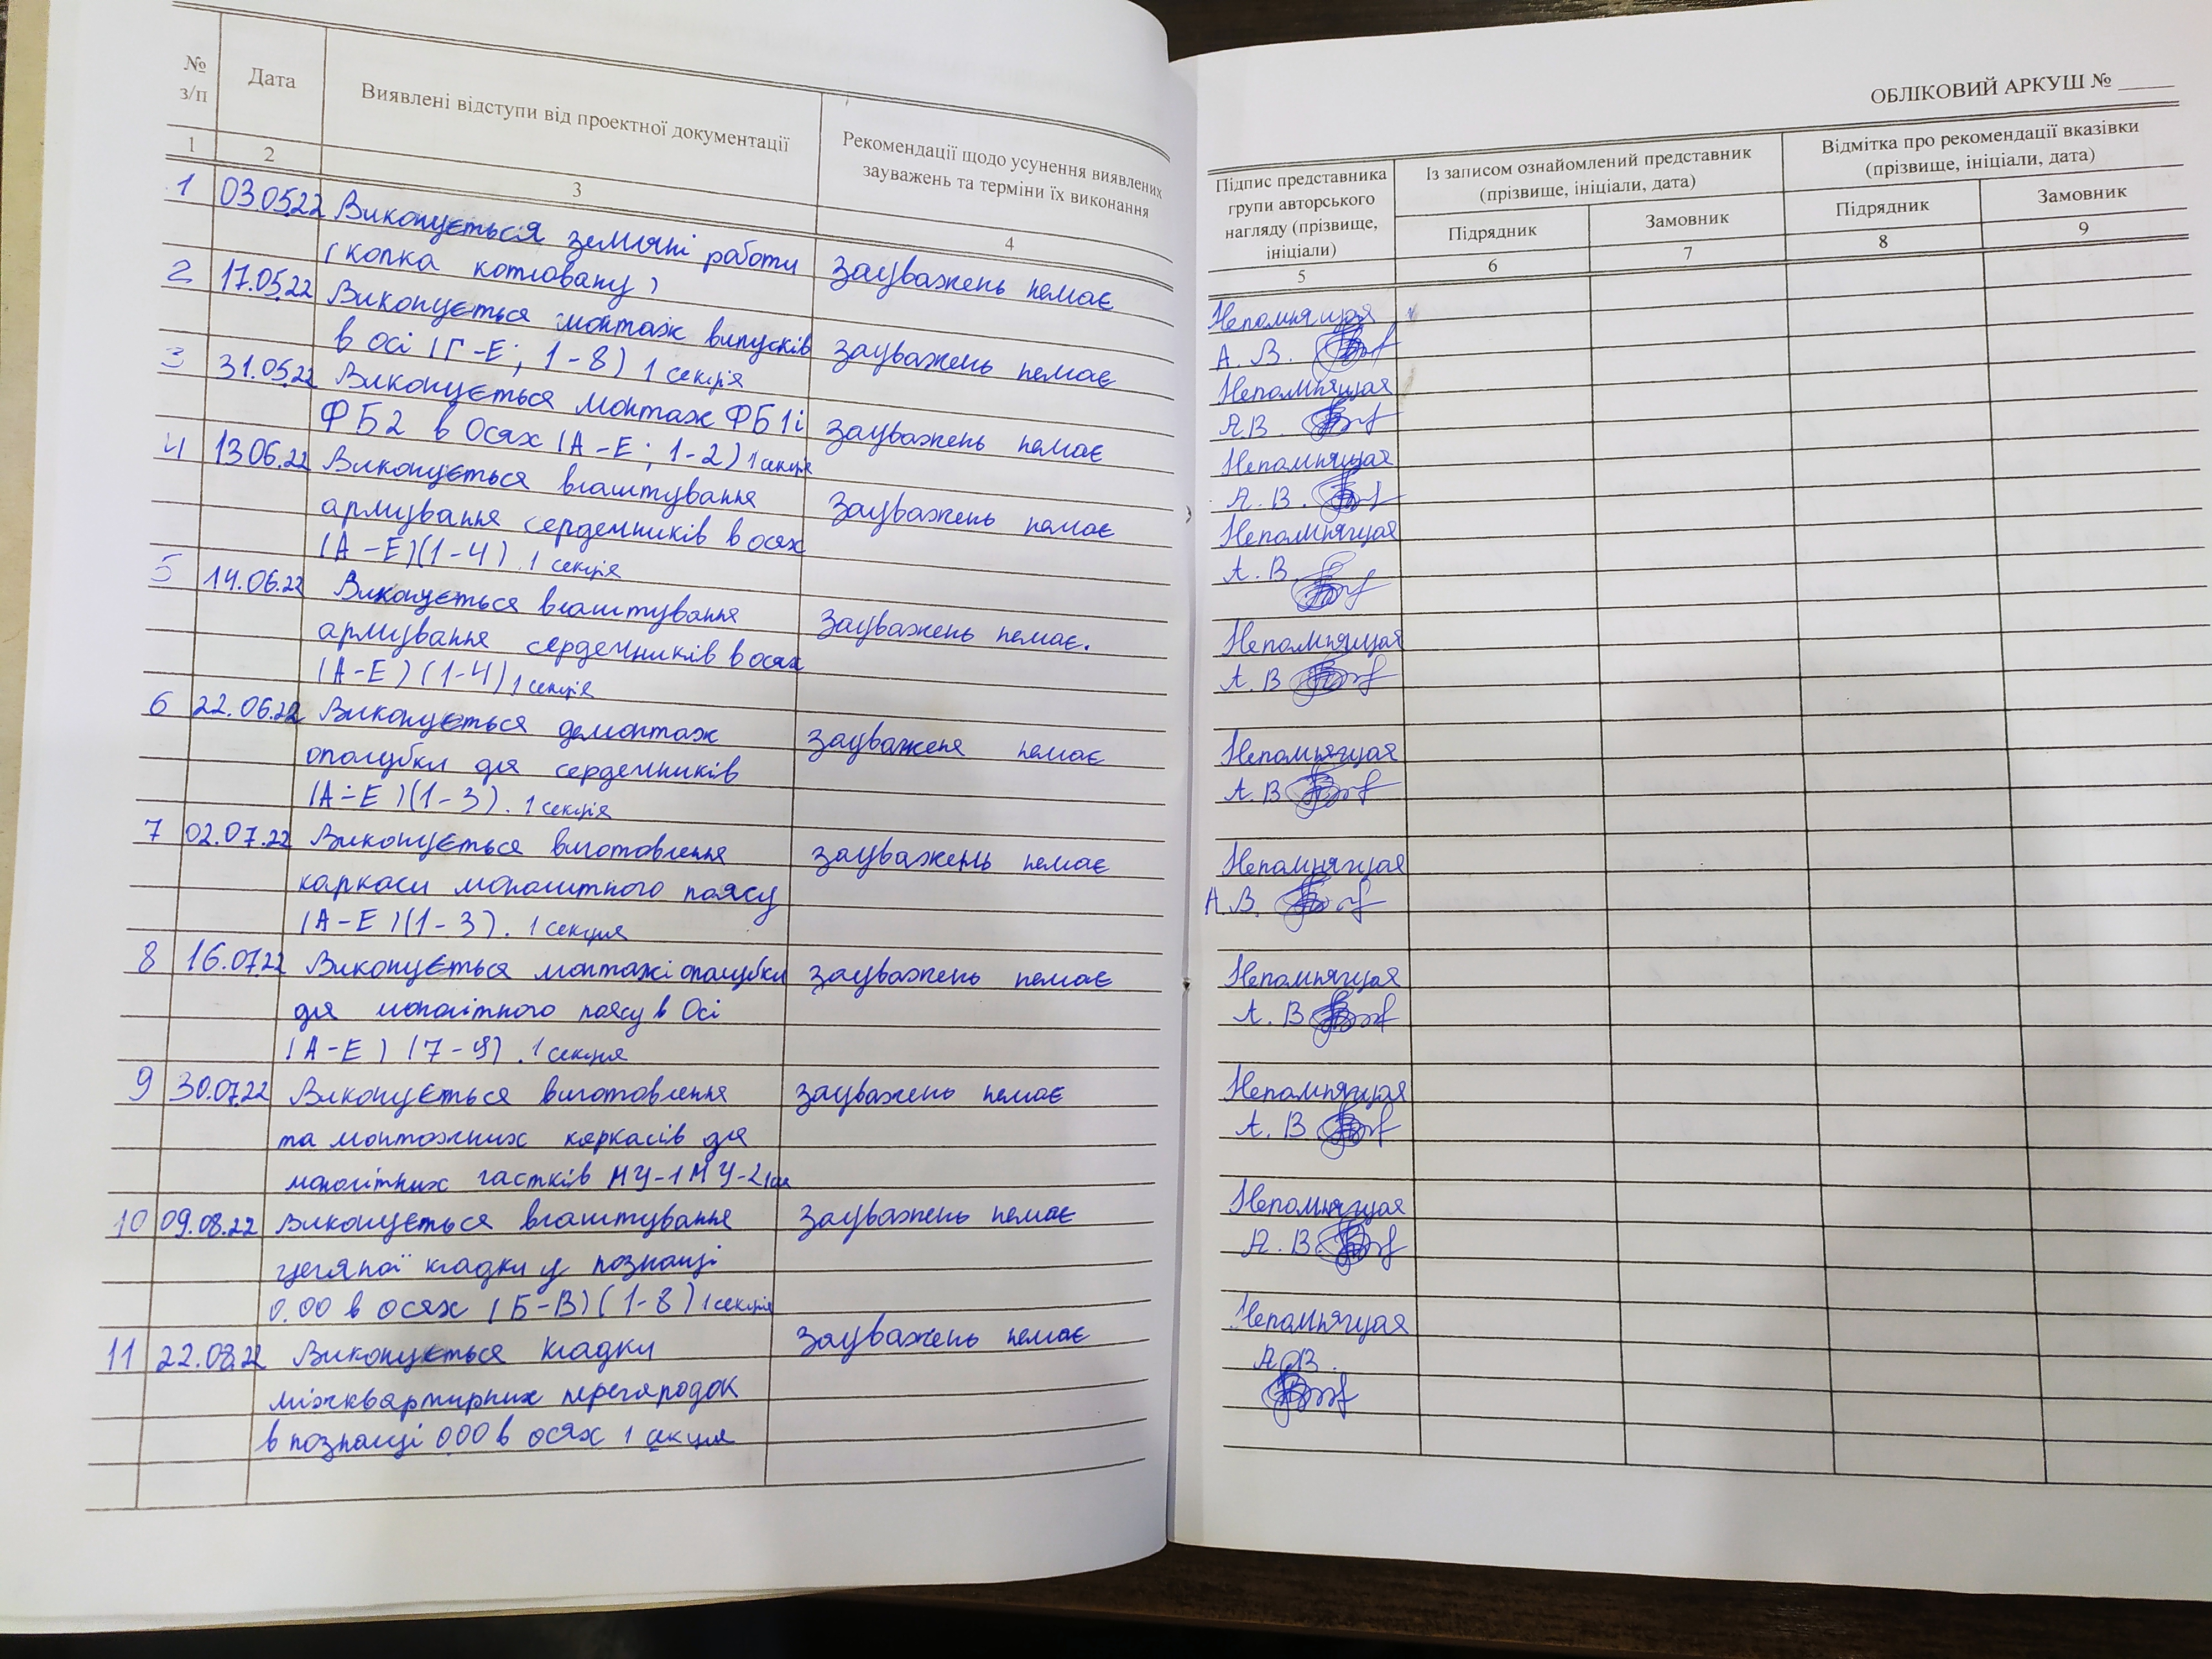 №
з/п
Дата
Виявлені відступи від проектної документації
Рекомендації щодо усунення виявлених
зауважень та терміни їх виконання
1
2
3
4
1 03.05.22 Виконується земляні работи
(копка котловану)
зауважень немає
2 17.05.22 Виконується монтаж випусків
в осі (Г-Е; 1-8) 1 секція
зауважень немає
3 31.05.22 Виконується монтаж ФБ1 і
ФБ2 в Осях (А-Е; 1-2) 1 секція
зауважень немає
4 13.06.22 Виконується влаштування
армування сердечників в осях
(А-Е)(1-4). 1 секція
зауважень немає
5 14.06.22 Виконується влаштування
армування сердечників в осях
(А-Е)(1-4) 1 секція
Зауважень немає.
6 22.06.22 Виконується демонтаж
опалубки для сердечників
(А-Е)(1-3). 1 секція
зауваженя немає
7 02.07.22 Виконується виготовлення
каркаси монолітного поясу
(А-Е)(1-3). 1 секция
зауважень немає
8 16.07.22 Виконується монтажі опалубки
для монолітного поясу в Осі
(А-Е) (7-9). 1 секция
зауважень немає
9 30.07.22 Виконується виготовлення
та монтажних каркасів для
монолітних частків МУ-1 МУ-2
зауважень немає
10 09.08.22 Виконується влаштування
цегляної кладки у познанці
0.00 в осях (Б-В)(1-8) 1 секція
зауважень немає
11 22.08.22 Виконується кладки
міжквартирних перегародок
в познанці 000 в осях 1 секция
зауважень немає
ОБЛІКОВИЙ АРКУШ № _____
Підпис представника
групи авторського
нагляду (прізвище,
ініціали)
Із записом ознайомлений представник
(прізвище, ініціали, дата)
Відмітка про рекомендації вказівки
(прізвище, ініціали, дата)
Підрядник
Замовник
Підрядник
Замовник
5
6
7
8
9
Непомнящая
А. В.
Непомнящая
А.В.
Непомнящая
А. В.
Непомнящая
А. В.
Непомнящая
А. В
Непомнящая
А. В
Непомнящая
А.В.
Непомнящая
А. В
Непомнящая
А. В
Непомнящая
А. В.
Непомнящая
А.В.